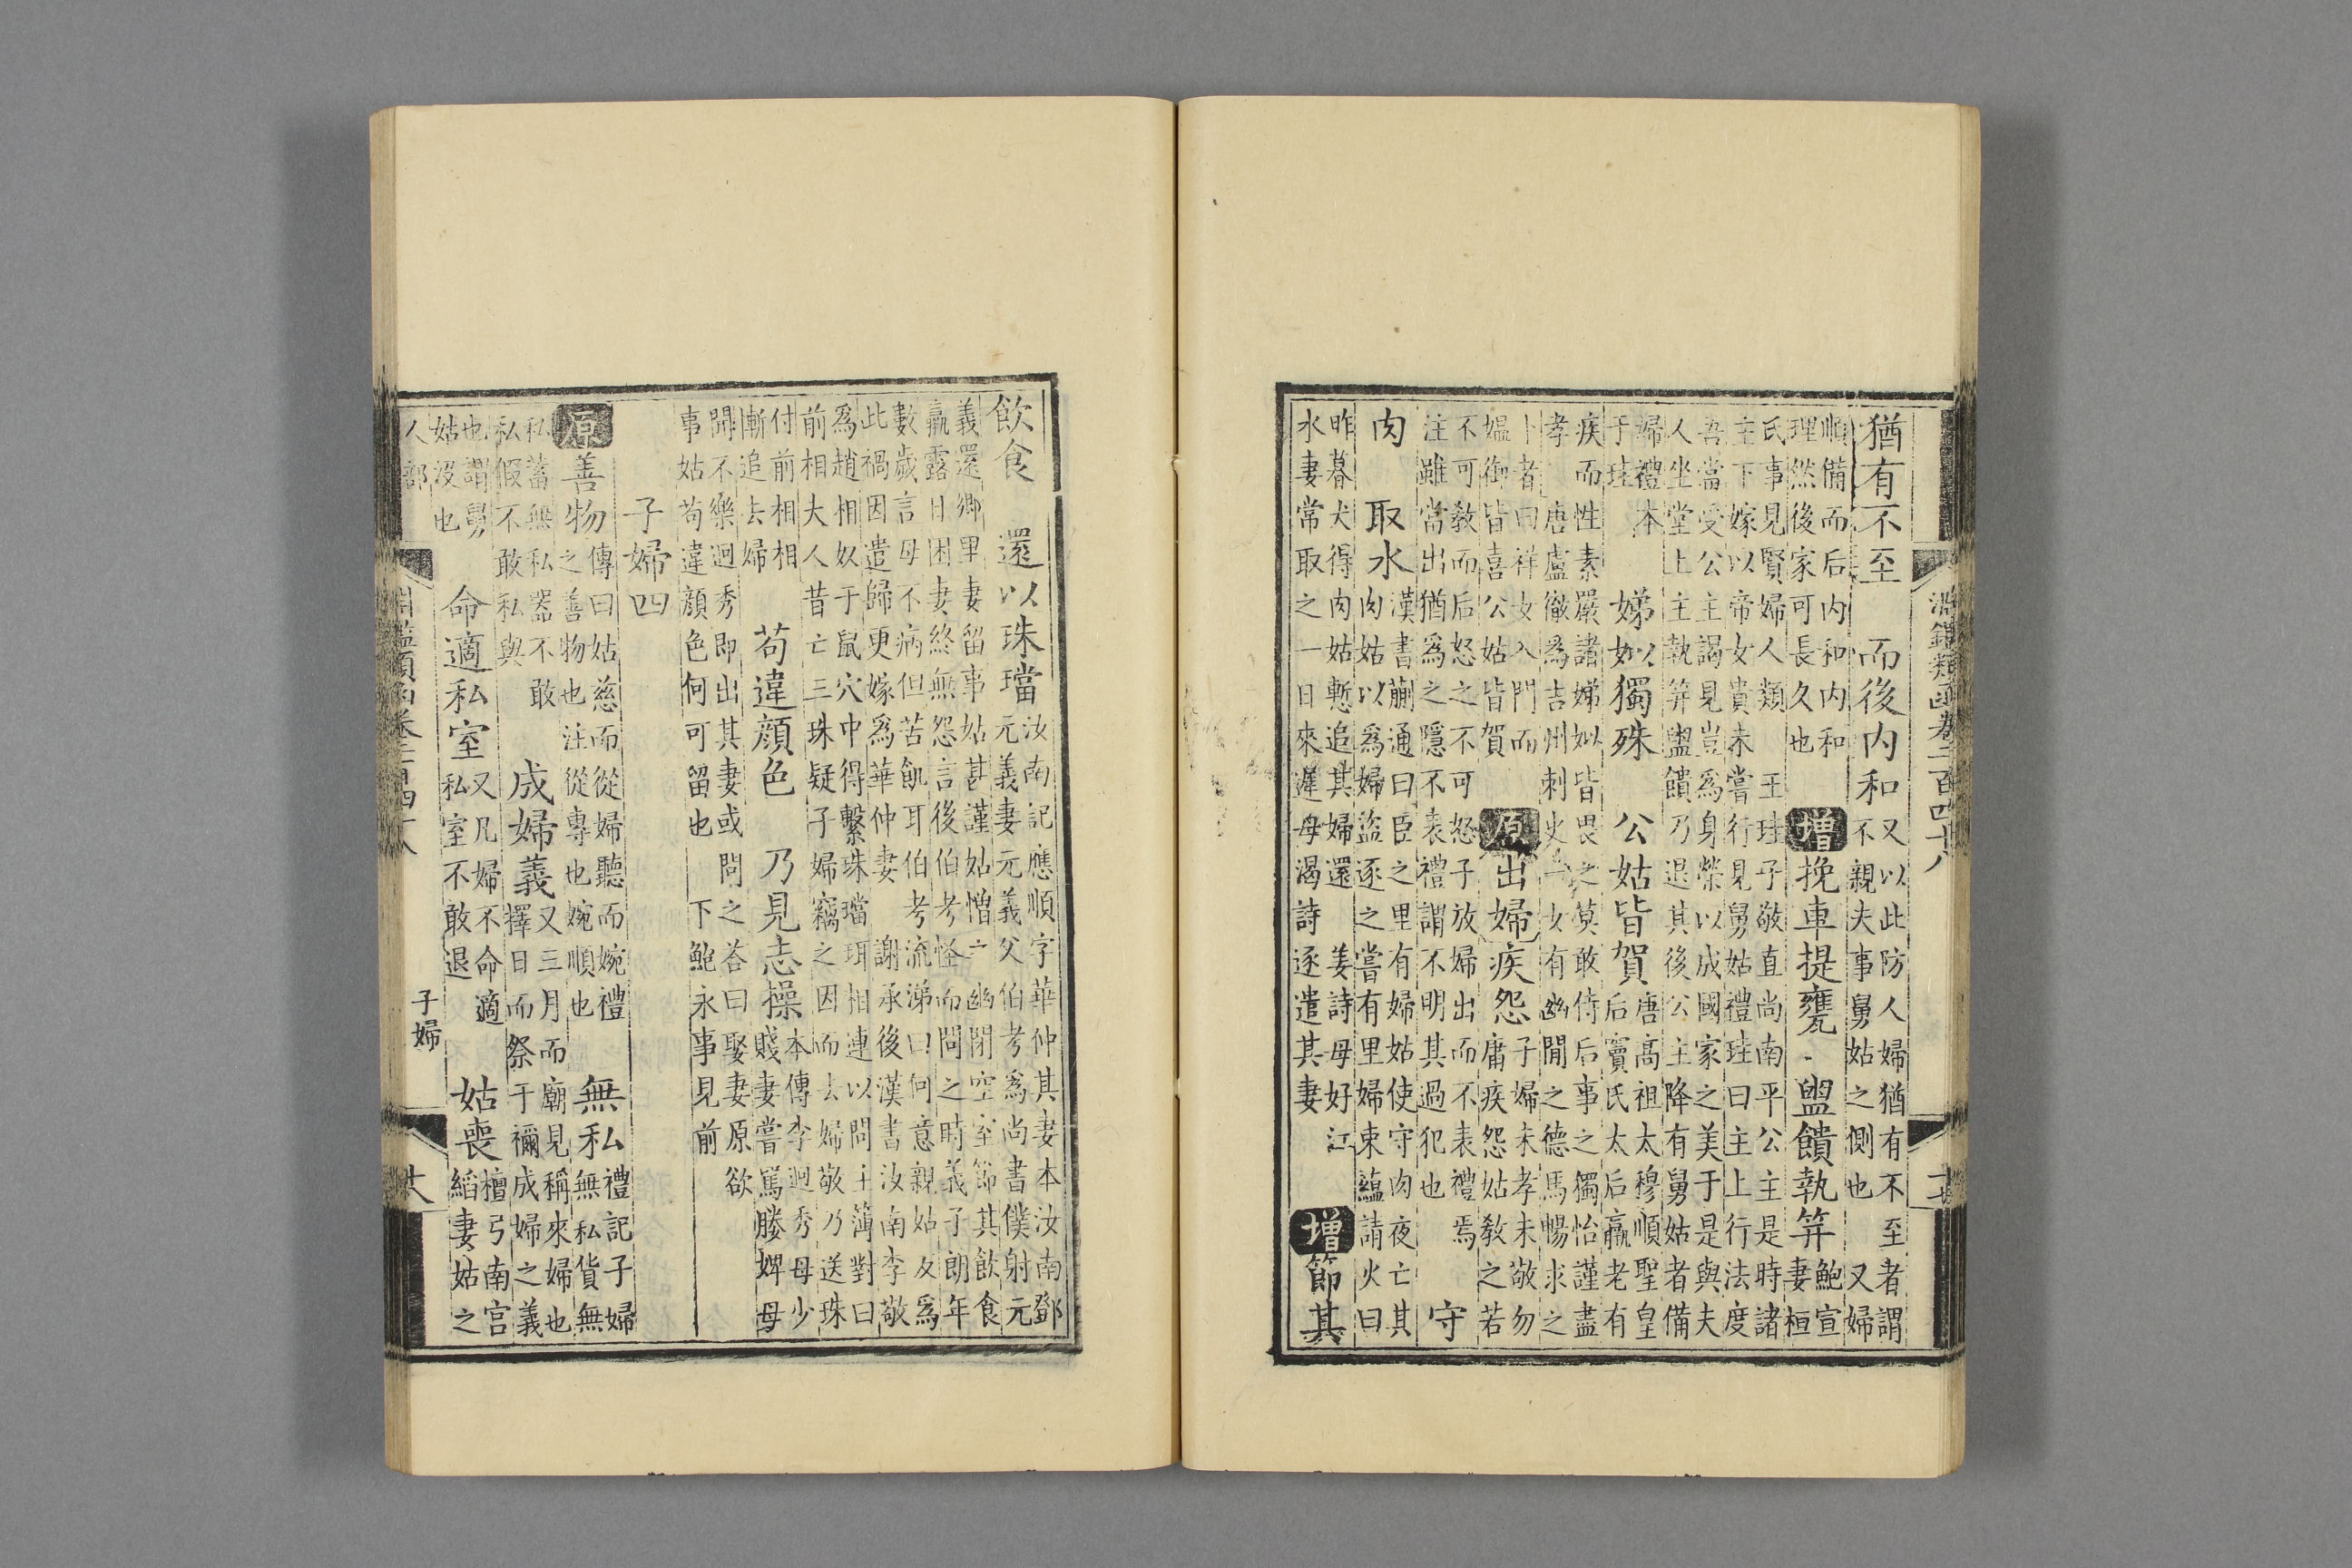 淵鑑類函卷二百四十八
十七
猶有不至 而後內和 又以此防人婦猶有不至者謂
不親夫事舅姑之側也 又婦
順備而后內和內和
理然後家可長久也 增 挽車提甕 盥饋執笄 鮑宣
妻桓
氏事見賢婦人類 王珪子敬直尚南平公主是時諸
主下嫁以帝女貴未嘗行見舅姑禮珪曰主上行法度
吾當受公主謁見豈爲身榮以成國家之美于是與夫
人坐堂上主執笄盥饋乃退其後公主降有舅姑者備
婦禮本
于珪 娣姒獨殊 公姑皆賀 唐高祖太穆順聖皇
后竇氏太后羸老有
疾而性素嚴諸娣姒皆畏之莫敢侍后事之獨怡謹盡
孝 唐盧徹爲吉州刺史一女有幽閒之德馬暢求之
卜者曰祥女入門而
媼御皆喜公姑皆賀 原 出婦疾怨 子婦未孝未敬勿
庸疾怨姑教之若
不可教而后怒之不可怒子放婦出而不表禮焉
注雖當出猶爲之隱不表禮謂不明其過犯也 守
肉 取水 漢書蒯通曰臣之里有婦姑使守肉夜亡其
肉姑以爲婦盜逐之嘗有里婦束蘊請火曰
昨暮犬得肉姑慙追其婦還 姜詩母好江
水妻常取之一日來遲母渴詩逐遣其妻 增 節其
飲食 還以珠璫 汝南記應順字華仲其妻本汝南鄧
元義妻元義父伯考爲尚書僕射元
義還鄉里妻留事姑甚謹姑憎之幽閉空室節其飲食
羸露日困妻終無怨言後伯考怪而問之時義子朗年
數歲言母不病但苦飢耳伯考流涕曰何意親姑反爲
此禍因遣歸更嫁爲華仲妻 謝承後漢書汝南李敬
爲趙相奴于鼠穴中得繫珠璫珥相連以問主簿對曰
前相夫人昔亡三珠疑子婦竊之因而去婦敬乃送珠
付前相相
慚追去婦 苟違顏色 乃見志操 本傳李迥秀母少
賤妻嘗罵媵婢母
聞不樂迥秀即出其妻或問之荅曰娶妻原欲
事姑苟違顏色何可留也 下鮑永事見前
子婦四
原 善物 傳曰姑慈而從婦聽而婉禮
之善物也注從專也婉順也 無私 禮記子婦
無私貨無
私蓄無私器不敢
私假不敢私與 成婦義 又三月而廟見稱來婦也
擇日而祭于禰成婦之義
也謂舅
姑沒也 命適私室 又凡婦不命適
私室不敢退 姑喪 檀弓南宮
縚妻姑之
人部
淵鑑類函卷二百四十八
子婦
十八